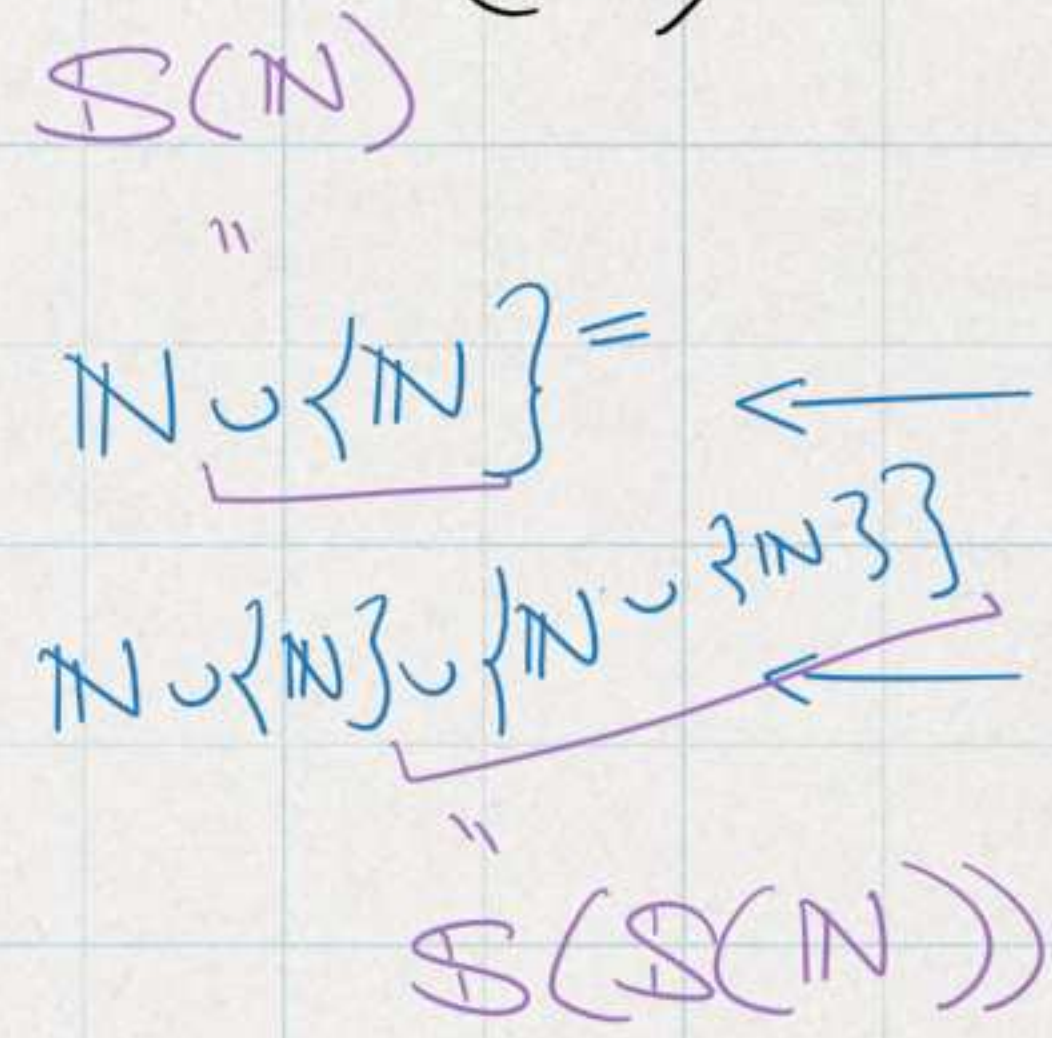 𝕊(ℕ)
"
ℕ ∪ {ℕ} =
←
ℕ ∪ {ℕ} ∪ {ℕ ∪ {ℕ}}
←
"
𝕊(𝕊(ℕ))